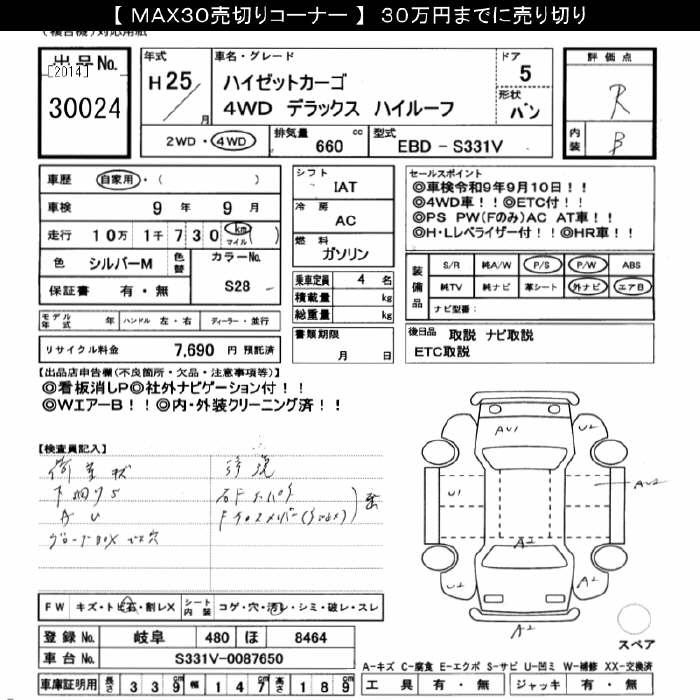 【 MAX30売切りコーナー 】 30万円までに売り切り
出品No.
[2014]
30024
年式
H 25
月
車名・グレード
ハイゼットカーゴ
4WD デラックス ハイルーフ
ドア
5
形状
バン
2WD・4WD
排気量
660 cc
型式
EBD - S331V
評価点
R
内装
B
車歴 自家用・( )
車検 9 年 9 月
走行 10万 1千 7 3 0 km マイル ( )
色 シルバーM 色替 カラーNo.
保証書 有・無 S28
シフト
IAT
冷房
AC
燃料
ガソリン
乗車定員 4 名
積載量 kg
総重量 kg
書類期限
月 日
セールスポイント
◎車検令和9年9月10日!!
◎4WD車!!◎ETC付!!
◎PS PW(Fのみ)AC AT車!!
◎H・Lレベライザー付!!◎HR車!!
装備品
S/R 純A/W P/S P/W ABS
純TV 純ナビ 革シート 外ナビ エアB
ナビ型番:
モデル年式 年 ハンドル 左・右 ディーラー・並行
リサイクル料金 7,690 円 預託済
後日品 取説 ナビ取説
ETC取説
【出品店申告欄(不良箇所・欠品・注意事項等)】
◎看板消しP◎社外ナビゲーション付!!
◎WエアーB!!◎内・外装クリーニング済!!
【検査員記入】
A U
AU1
U2
U1
AU2
A2
U2
A2
A2
スペア
FW キズ・トビ石・割レX シート内装 コゲ・穴・汚レ・シミ・破レ・スレ
登録No. 岐阜 480 ほ 8464
車台No. S331V-0087650
車庫証明用 長さ 339 cm 幅 147 cm 高さ 189 cm
A-キズ C-腐食 E-エクボ S-サビ U-凹ミ W-補修 XX-交換済
工具 有・無 ジャッキ 有・無